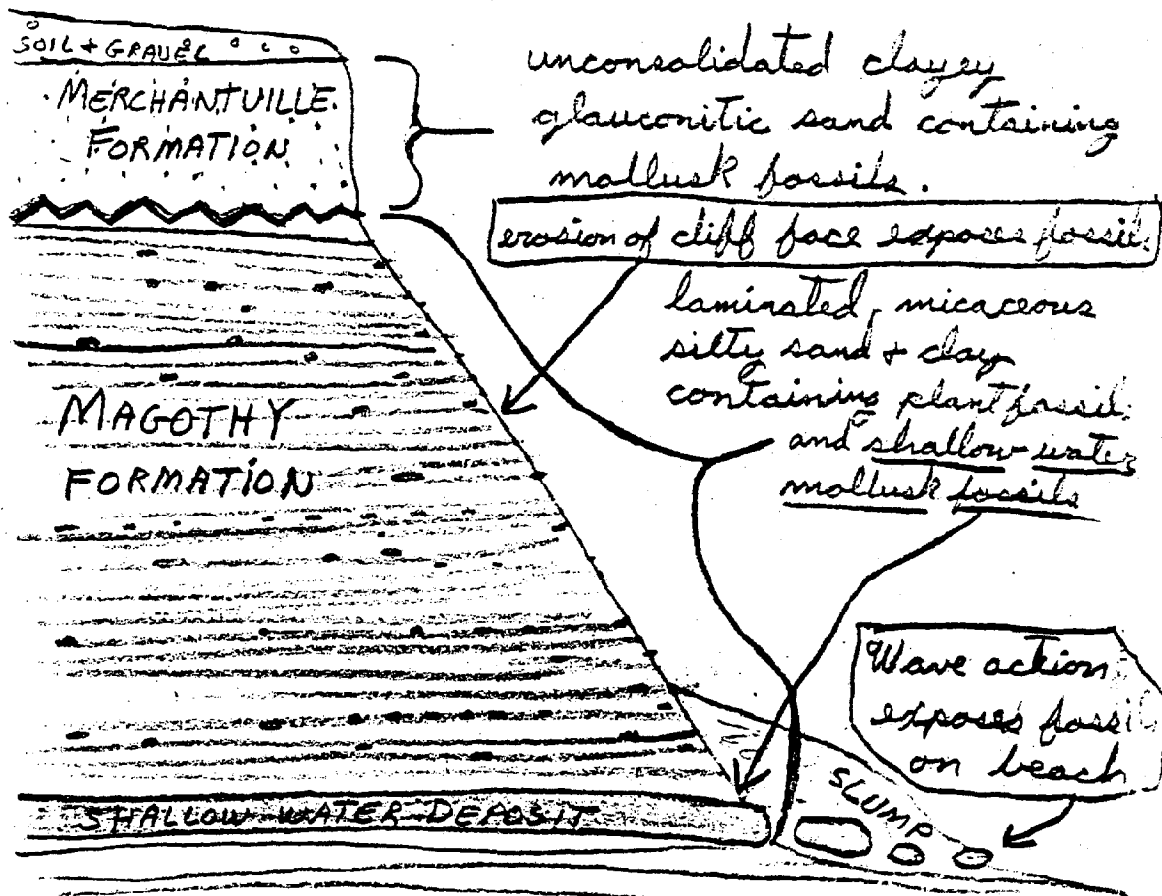 SOIL + GRAVEL
MERCHANTVILLE
FORMATION
unconsolidated clayey
glauconitic sand containing
mollusk fossils.
erosion of cliff face exposes fossils
laminated, micaceous
silty sand + clay
containing plant fossils
and shallow water
mollusk fossils
MAGOTHY
FORMATION
Wave action
exposes fossils
on beach
SLUMP
SHALLOW WATER DEPOSIT